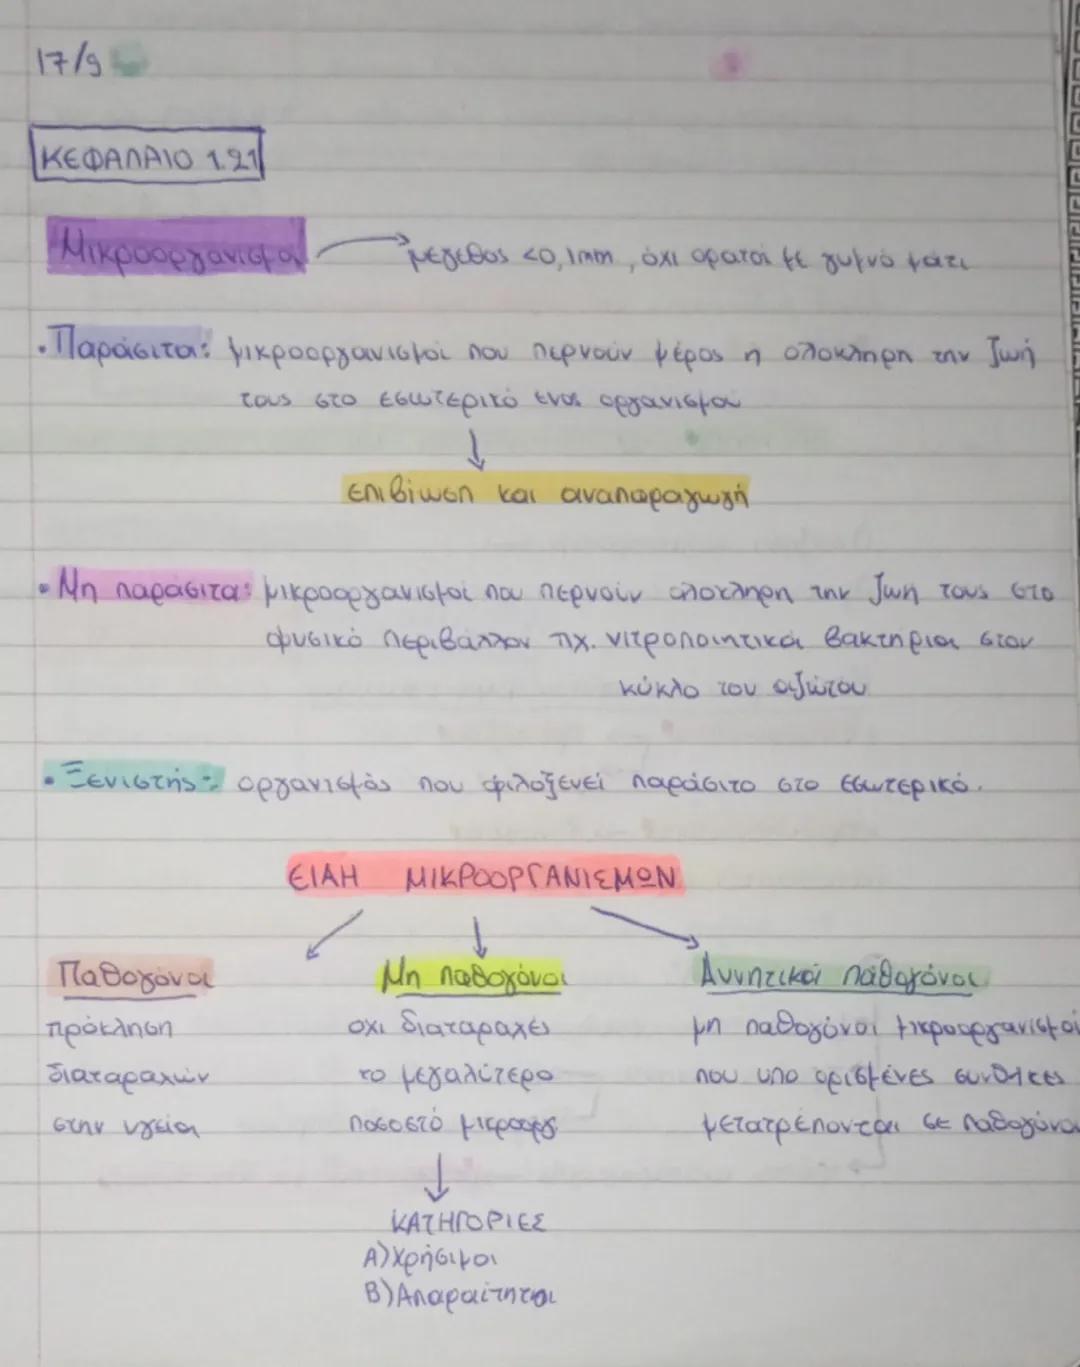 17/9
ΚΕΦΑΛΑΙΟ 1.21
Μικροοργανισμοί → μέγεθος <0,1mm, όχι ορατοί με γυμνό μάτι
• Παράσιτα: μικροοργανισμοί που περνούν μέρος η ολοκληρη την ζωή
τους στο εσωτερικό ενος οργανισμού
↓
επιβίωση και αναπαραγωγή
• Μη παράσιτα: μικροοργανισμοί που περνούν ολοκληρη την ζωή τους στο
φυσικό περιβάλλον πχ. νιτροποιητικά βακτήρια στον
κύκλο του αζώτου
• Ξενιστής: οργανισμός που φιλοξενεί παράσιτο στο εσωτερικό.
ΕΙΔΗ ΜΙΚΡΟΟΡΓΑΝΙΣΜΩΝ
Παθογόνοι Μη παθογόνοι Δυνητικοί παθογόνοι
πρόκληση οχι διαταραχές μη παθογόνοι μικροοργανισμοί
διαταραχών το μεγαλύτερο που υπο ορισμένες συνθήκες
στην υγεία ποσοστό μικροοργ. μετατρέπονται σε παθογόνοι
↓
ΚΑΤΗΓΟΡΙΕΣ
Α) Χρήσιμοι
Β) Απαραίτητοι